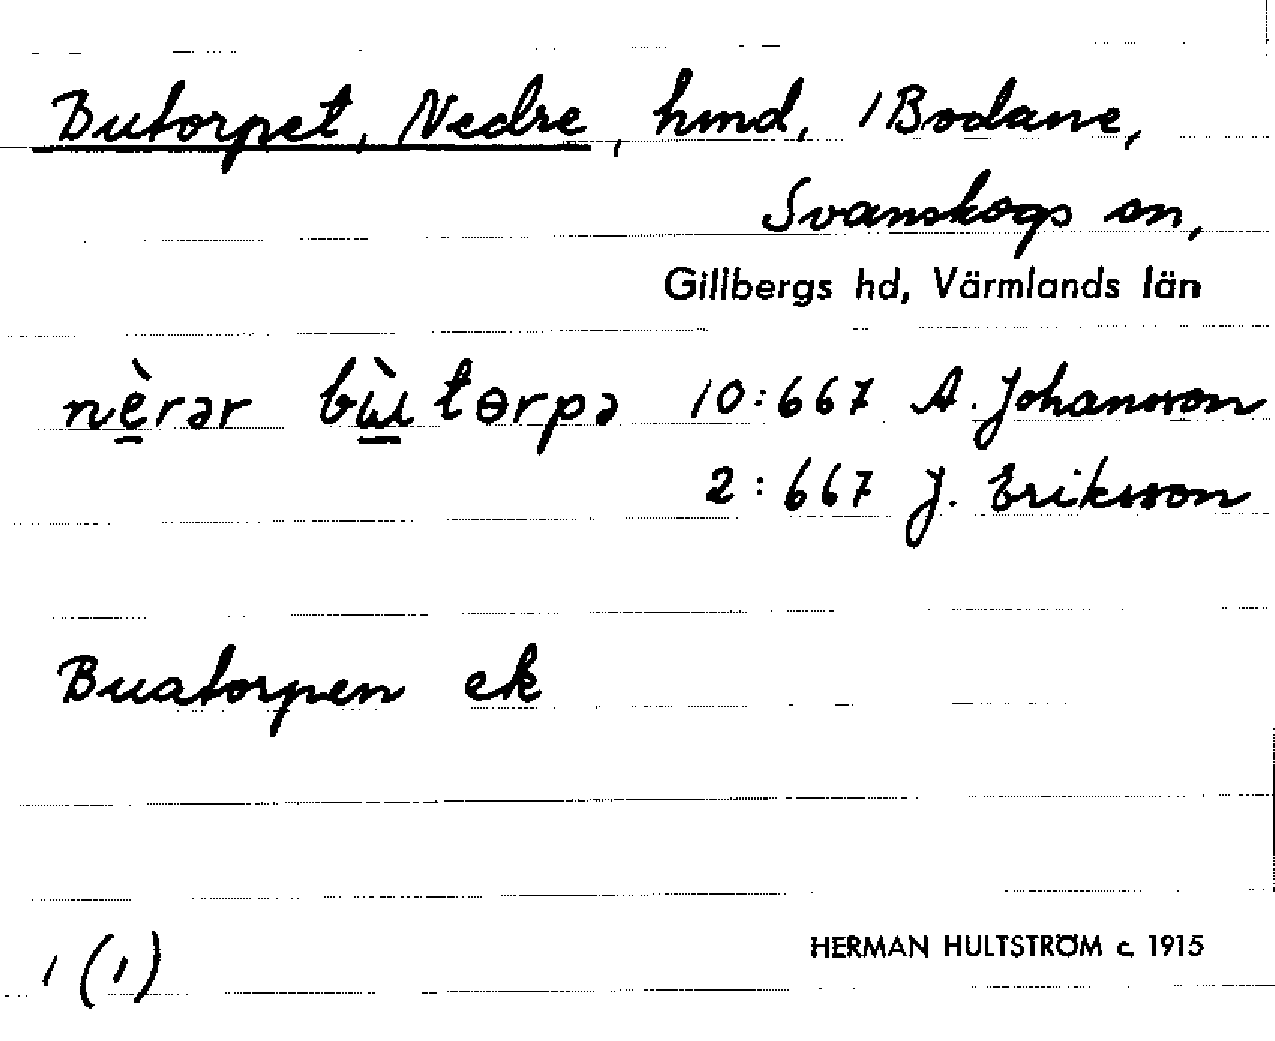 Butorpet, Nedre, hmd, 1 Bodane,
Svanskogs sn,
Gillbergs hd, Värmlands län
nèrər bùtɵrpə 10:667 A. Johansson
2:667 J. Eriksson
Buatorpen ek
1 (1)
HERMAN HULTSTRÖM c. 1915